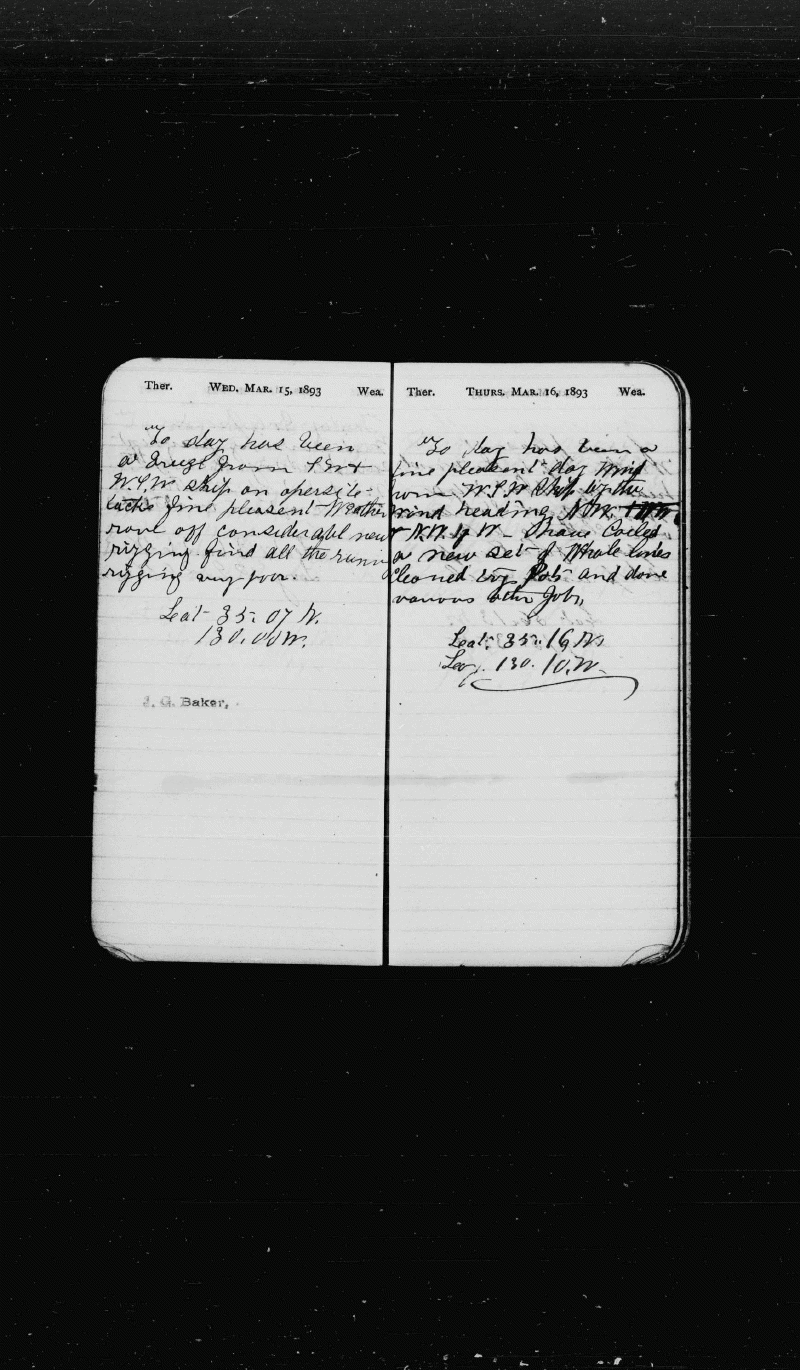 Ther. WED. MAR. 15, 1893 Wea.
To day has been
a breeze from S.W. &
W.S.W ship on opersite
tacks fine pleasent Weather
rove off considerabl new
rigging find all the runin
rigging very poor.
Leat 35. 07 N.
130.00 W.
J. G. Baker,
Ther. THURS. MAR. 16, 1893 Wea.
To day has been a
fine pleasent day Wind
from W.S.W Ship by the
wind heading
& N.W. by W - Have Coiled
a new set of Whale lines
cleaned try Pots and done
various other Jobs,
Leat. 35. 16 N
Log. 130. 10. W.